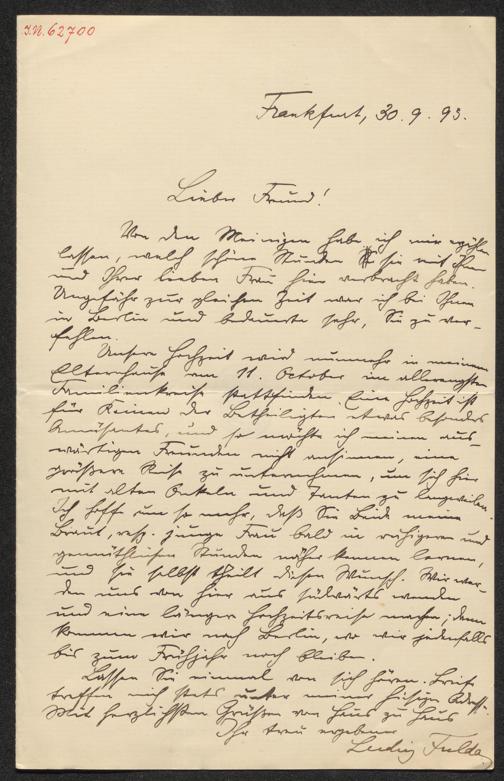 I.N. 62700
Frankfurt, 30. 9. 93.
Lieber Freund!
Von den Meinigen habe ich mir erzählen
lassen, welch schöne Stunden sie mit Ihnen
und Ihrer lieben Frau hier verbracht haben.
Ungefähr zur gleichen Zeit war ich bei Ihnen
in Berlin und bedauerte sehr, Sie zu ver-
fehlen.
Unsere Hochzeit wird nunmehr in meinem
Elternhause am 11. October im allerengsten
Familienkreise stattfinden. Eine Hochzeit ist
für Keinen der Betheiligten etwas besonders
Amüsantes, und so möchte ich meinen aus-
wärtigen Freunden nicht ansinnen, eine
größere Reise zu unternehmen, um sich hier
mit alten Onkeln und Tanten zu langweilen.
Ich hoffe um so mehr, daß Sie Beide meine
Braut, resp. junge Frau bald in ruhigeren und
gemüthlichen Stunden näher kennen lernen,
und sie selbst theilt diesen Wunsch. Wir wer-
den uns von hier aus südwärts wenden
und eine längere Hochzeitsreise machen; dann
kommen wir nach Berlin, wo wir jedenfalls
bis zum Frühjahr noch bleiben.
Lassen Sie einmal von sich hören. Briefe
treffen mich stets unter meiner hiesigen Adresse.
Mit herzlichsten Grüßen von Haus zu Haus
Ihr treu ergebener
Ludwig Fulda